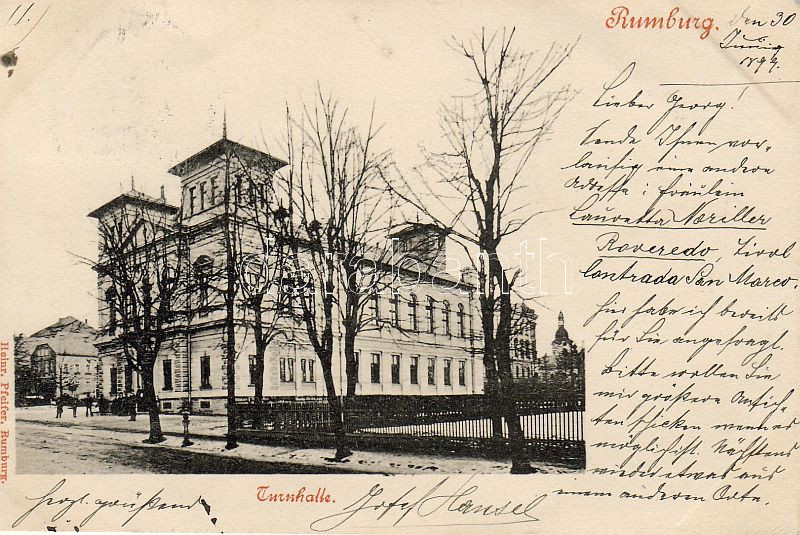 11.
Rumburg. den 30
1899.
Lieber Georg!
Sende Ihnen vor-
läufig eine andere
Adresse: Fräulein
Lauretta Noriller
Roveredo, Tirol
Contrada San Marco.
hier habe ich bereits
für Sie angefragt.
Bitte wollen Sie
mir größere Ansich-
ten schicken wenn es
möglich ist. Nächstens
wieder etwas aus
einem anderen Orte.
Turnhalle.
Herzl. grüßend Josef Hansel
Heinr. Pfeifer, Rumburg.
darabanth.com